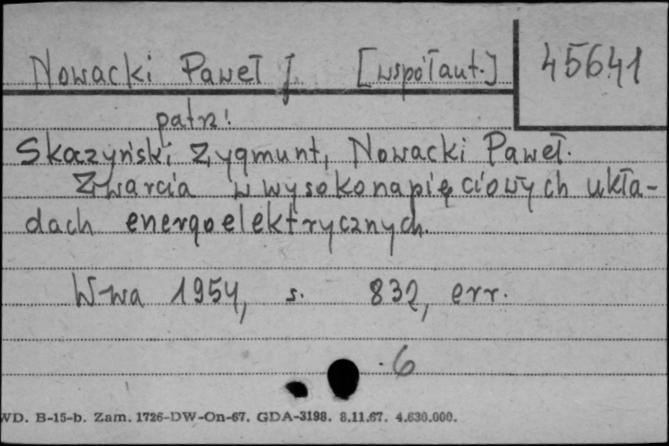 Nowacki Paweł J. [współaut.] 45641
patrz:
Skoczyński Zygmunt, Nowacki Paweł.
Zwarcia w wysokonapięciowych ukła-
dach energoelektrycznych.
W-wa 1954, s. 832, err.
6
WD. B-15-b. Zam. 1726-DW-On-67. GDA-3198. 8.11.67. 4.630.000.